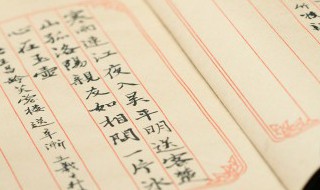 寒雨連江夜入吳平明送客楚
山孤洛陽親友如相問一片冰
心在玉壺
昌齡芙蓉樓送辛漸